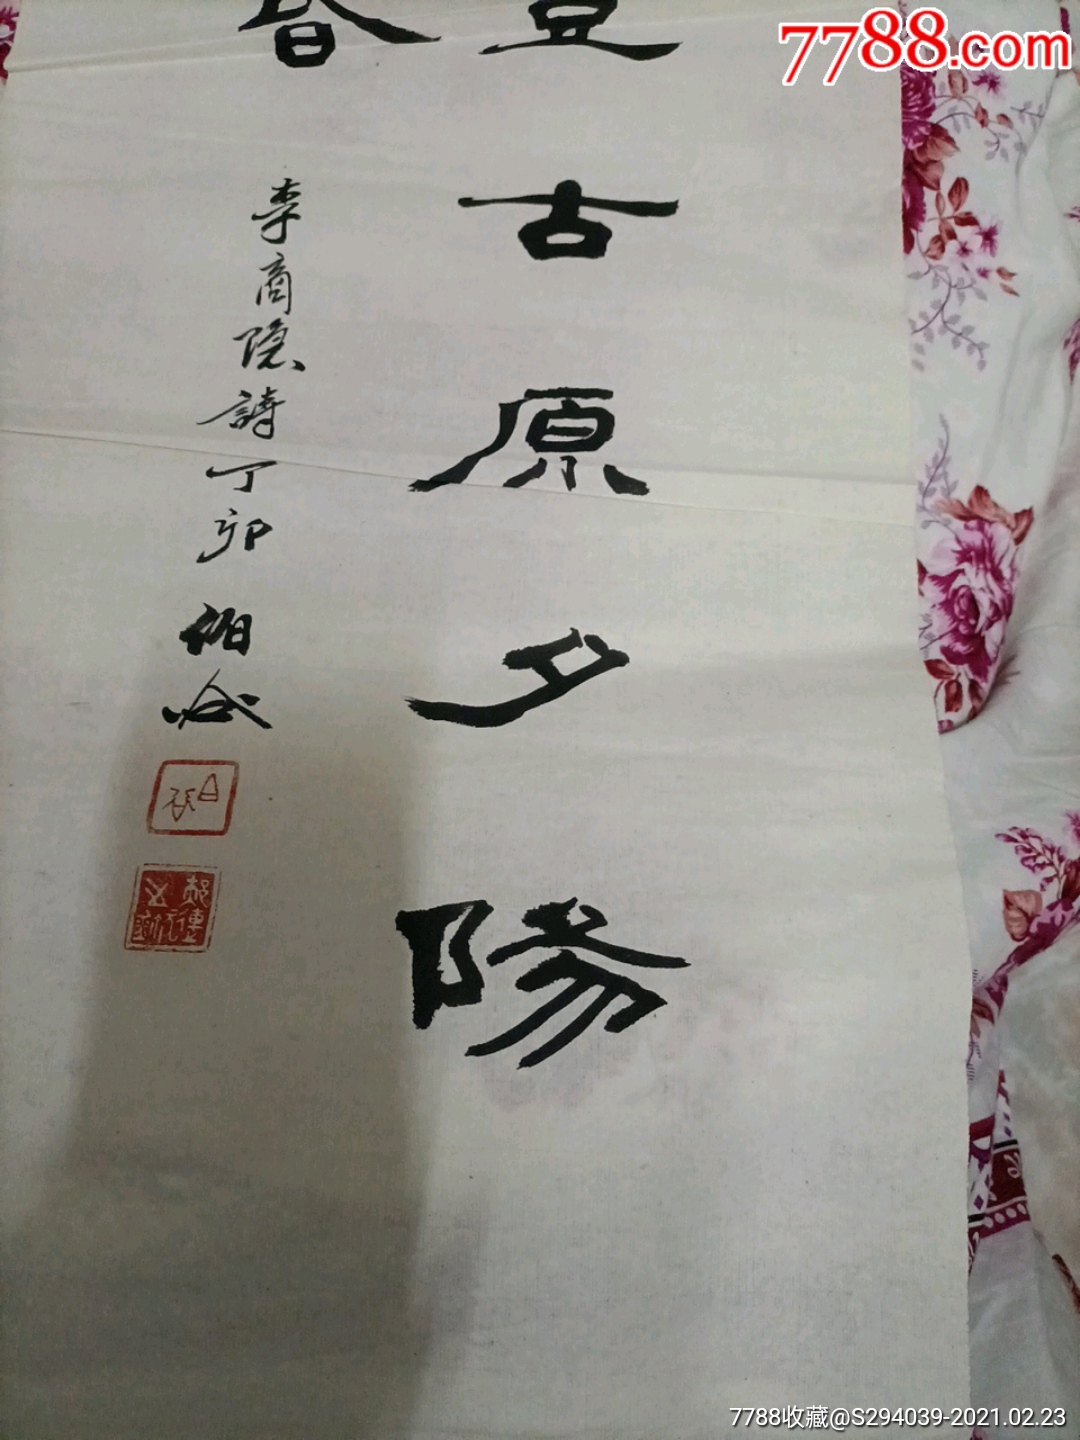 7788.com
登古原夕陽
昏
李商隐詩丁卯
7788收藏@S294039-2021.02.23